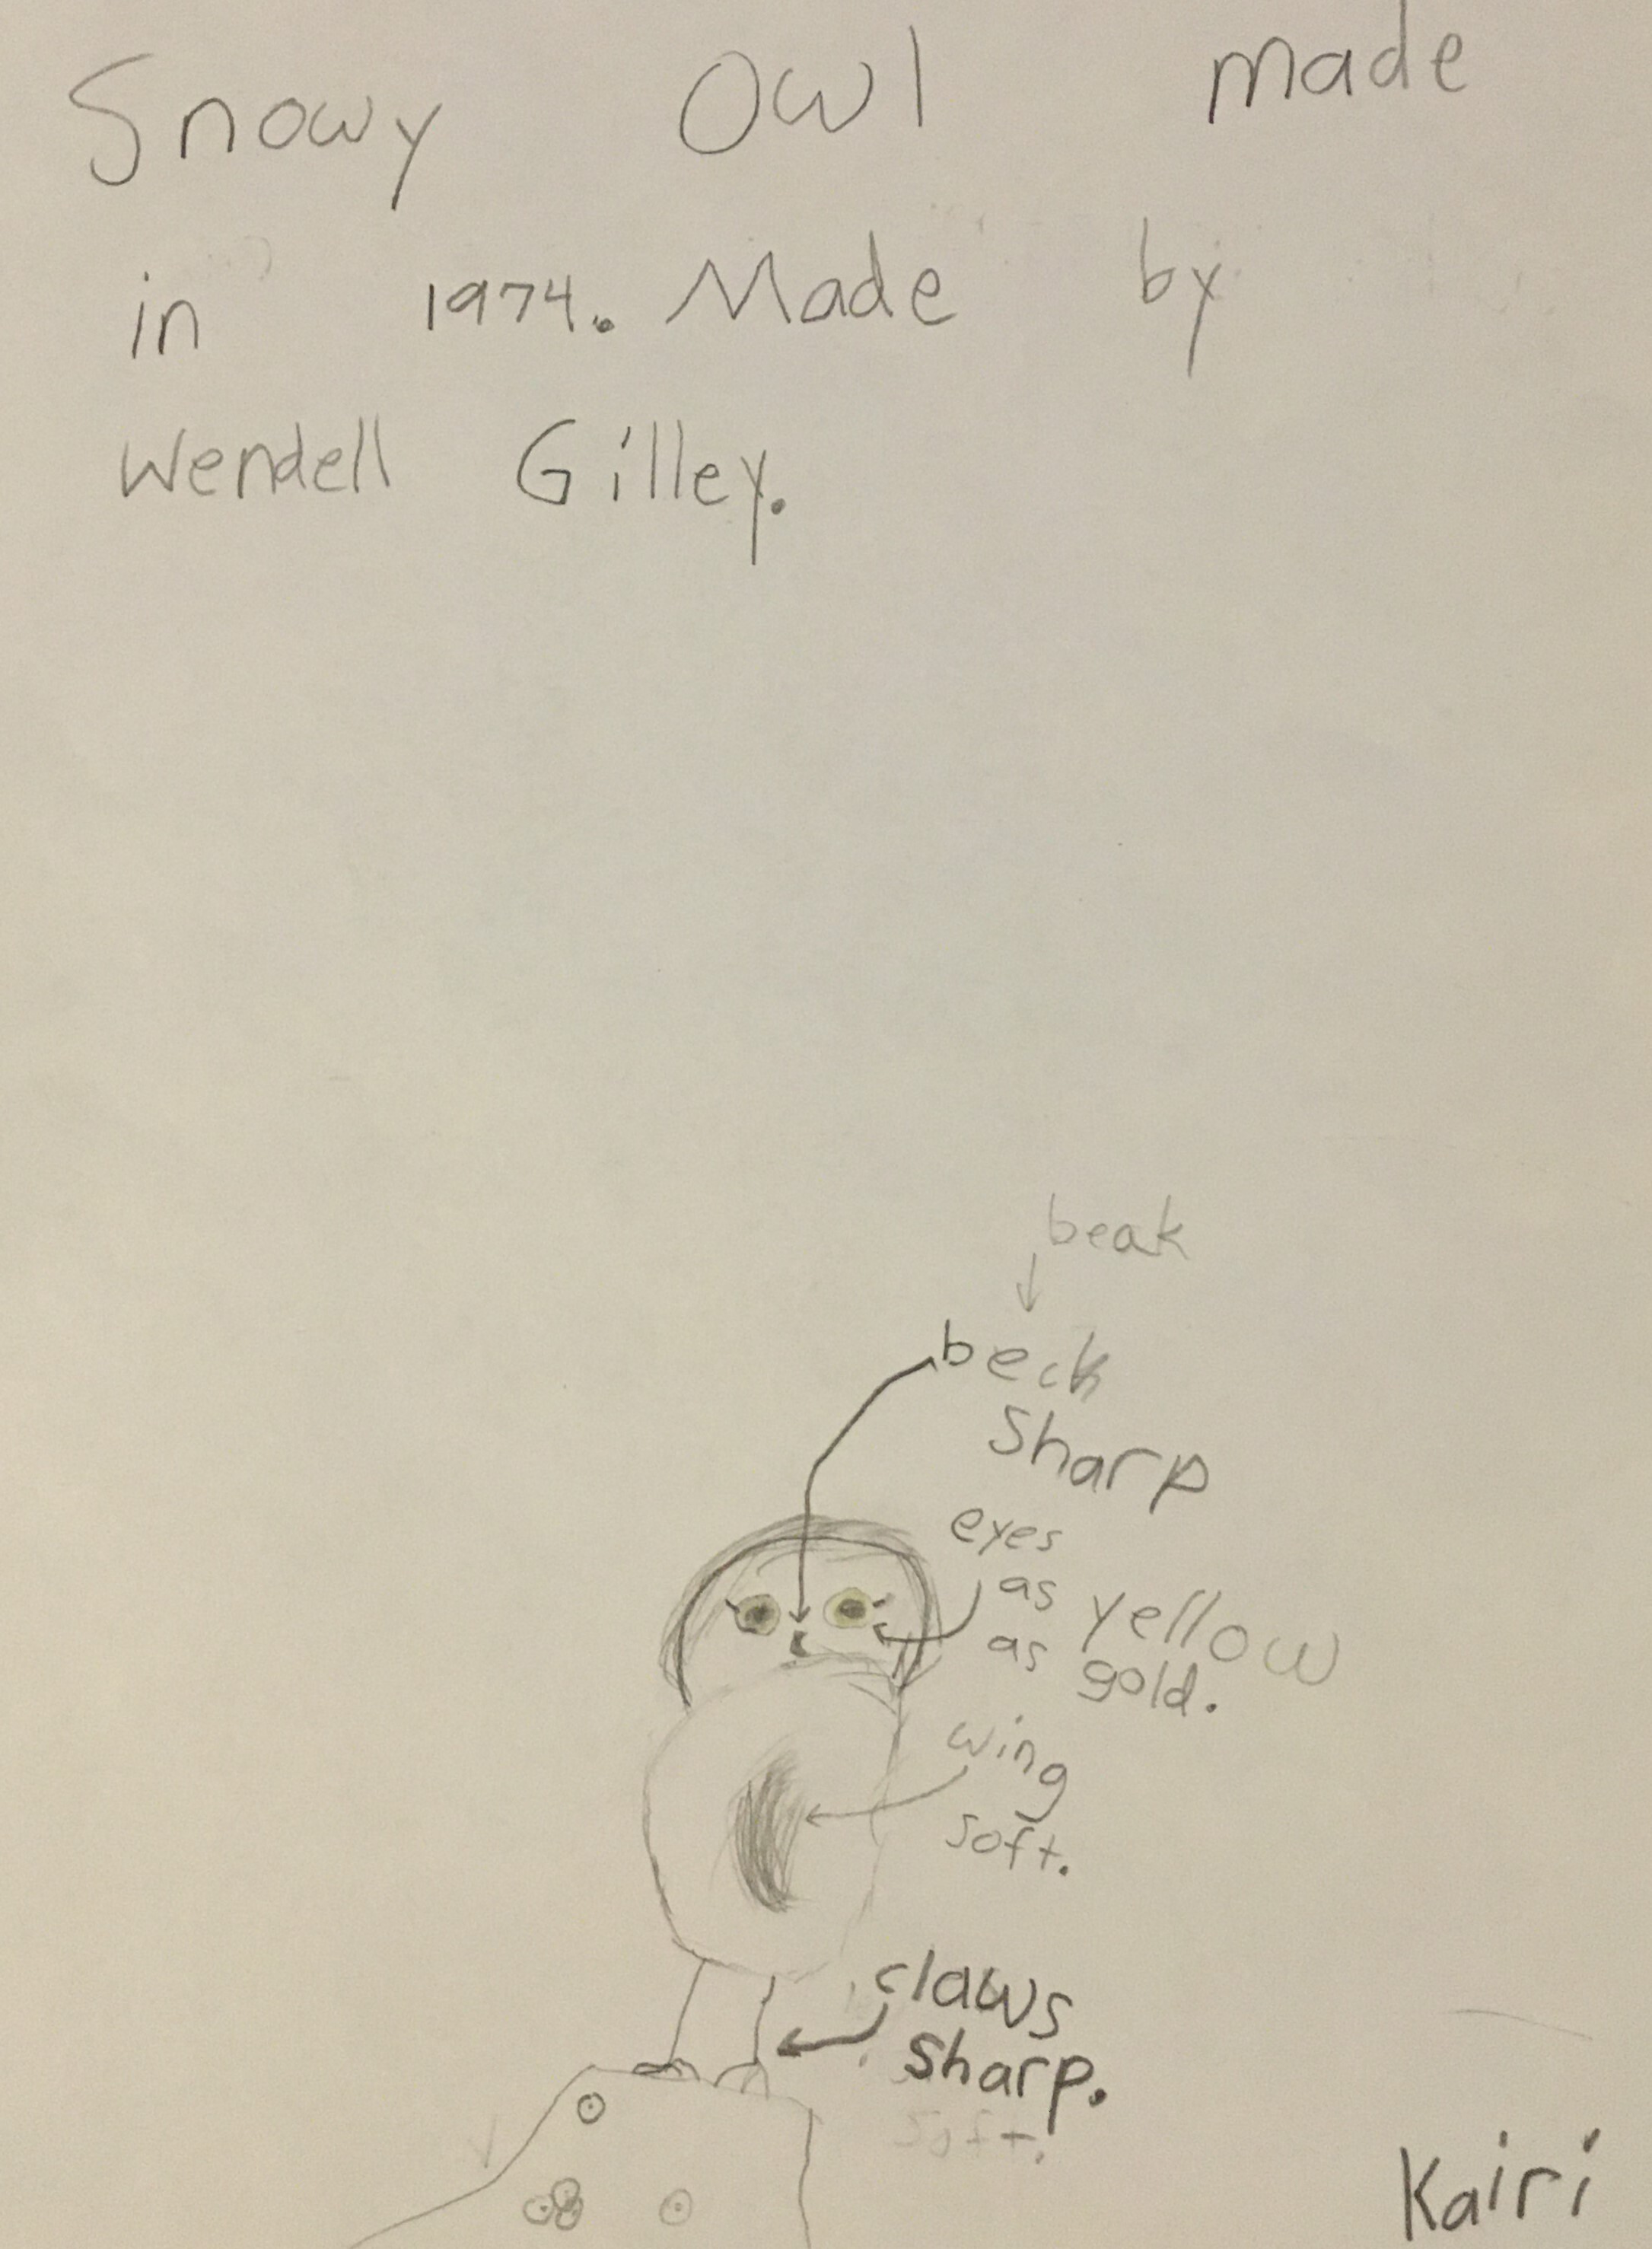 Snowy Owl made
in 1974. Made by
Wendell Gilley.
beak
beck
Sharp
eyes
as yellow
as gold.
wing
soft.
claws
sharp.
soft.
Kairi